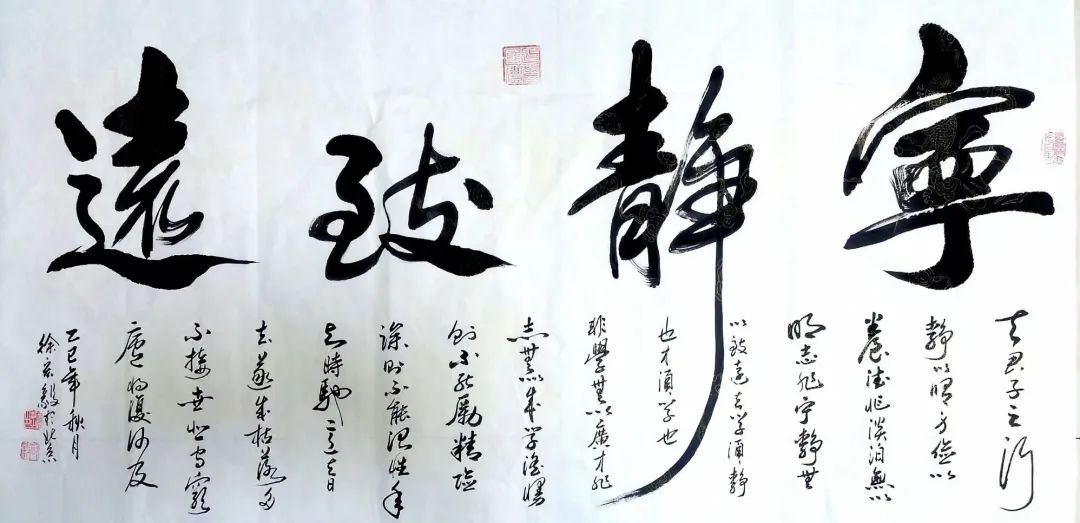 寧靜致遠
夫君子之行
静以修身儉以
養德非淡泊無以
明志非宁静無
以致遠夫学須静
也才須学也
非學無以廣才非
志無以成学淫慢
則不能勵精險
躁則不能治性年
与時馳意与日
去遂成枯落多
不接世悲守窮
廬将復何及
乙巳年秋月
徐毅於北京